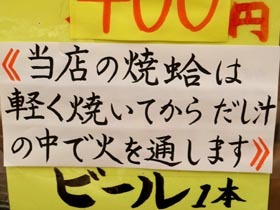 400円
《当店の焼蛤は
軽く焼いてからだし汁
の中で火を通します》
ビール1本